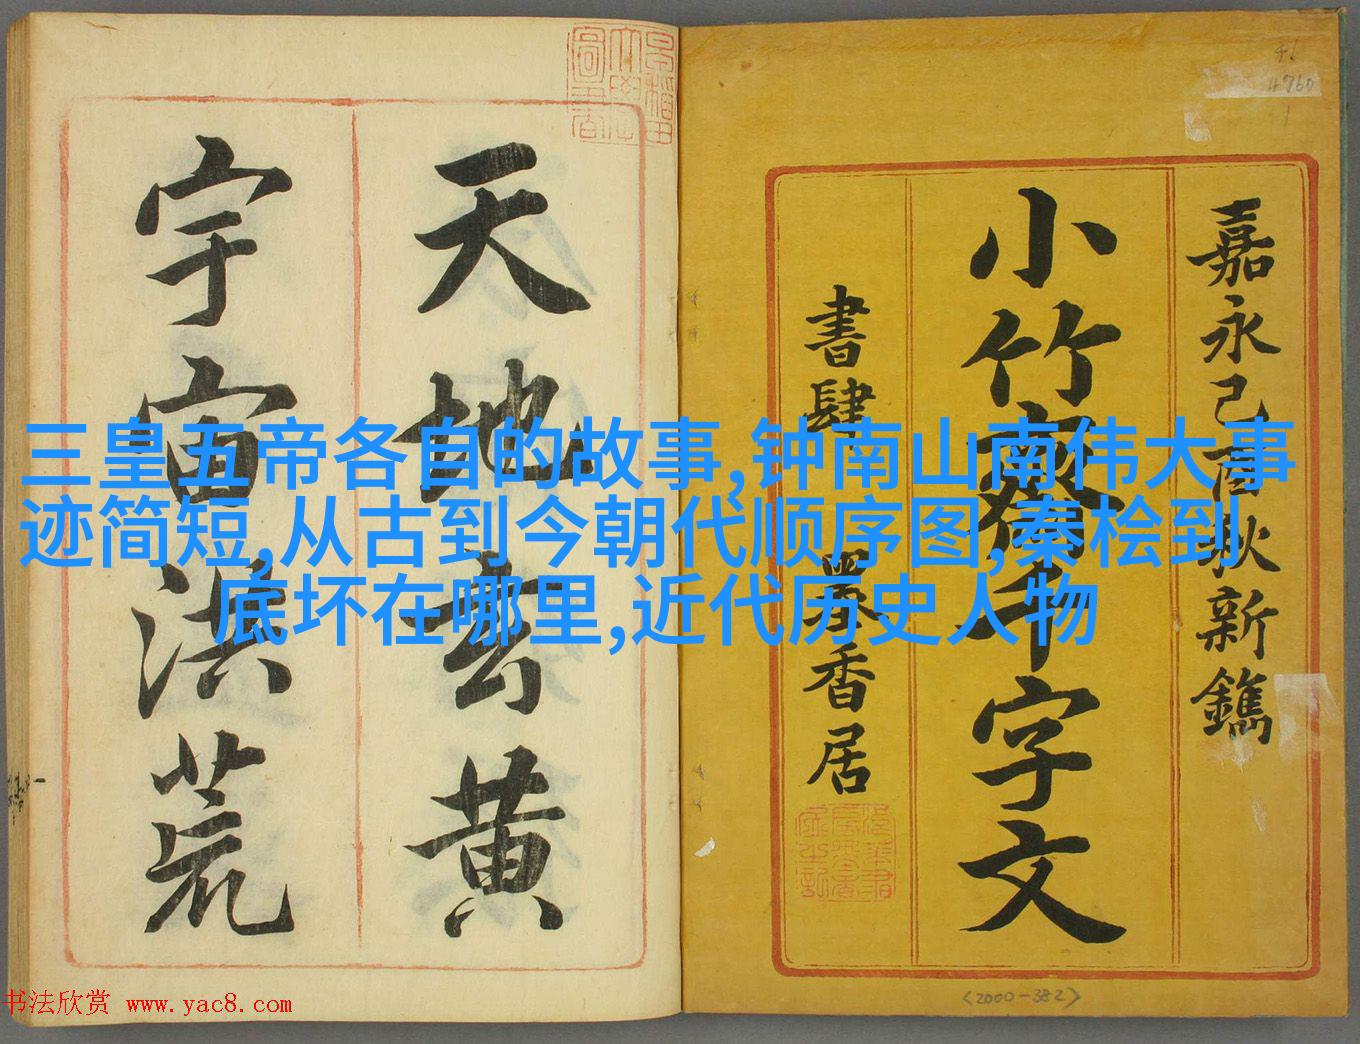 嘉永己酉秋新鐫
小竹齋千字文
書肆 墨香居
天地玄黄
宇宙洪荒
三皇五帝各自的故事,钟南山南伟大事
迹简短,从古到今朝代顺序图,秦桧到
底坏在哪里,近代历史人物
46
4760
1
<2000-382>
书法欣赏 www.yac8.com